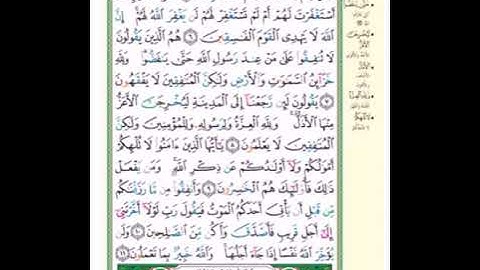 أَسْتَغْفَرْتَ لَهُمْ أَمْ لَمْ تَسْتَغْفِرْ لَهُمْ لَن يَغْفِرَ اللَّهُ لَهُمْ إِنَّ
اللَّهَ لَا يَهْدِي الْقَوْمَ الْفَاسِقِينَ ٦ هُمُ الَّذِينَ يَقُولُونَ
لَا تُنفِقُوا عَلَىٰ مَنْ عِندَ رَسُولِ اللَّهِ حَتَّىٰ يَنفَضُّوا وَلِلَّهِ
خَزَائِنُ السَّمَاوَاتِ وَالْأَرْضِ وَلَٰكِنَّ الْمُنَافِقِينَ لَا يَفْقَهُونَ
٧ يَقُولُونَ لَئِن رَّجَعْنَا إِلَى الْمَدِينَةِ لَيُخْرِجَنَّ الْأَعَزُّ
مِنْهَا الْأَذَلَّ وَلِلَّهِ الْعِزَّةُ وَلِرَسُولِهِ وَلِلْمُؤْمِنِينَ وَلَٰكِنَّ
الْمُنَافِقِينَ لَا يَعْلَمُونَ ٨ يَا أَيُّهَا الَّذِينَ آمَنُوا لَا تُلْهِكُمْ
أَمْوَالُكُمْ وَلَا أَوْلَادُكُمْ عَن ذِكْرِ اللَّهِ وَمَن يَفْعَلْ
ذَٰلِكَ فَأُولَٰئِكَ هُمُ الْخَاسِرُونَ ٩ وَأَنفِقُوا مِن مَّا رَزَقْنَاكُم
مِّن قَبْلِ أَن يَأْتِيَ أَحَدَكُمُ الْمَوْتُ فَيَقُولَ رَبِّ لَوْلَا أَخَّرْتَنِي
إِلَىٰ أَجَلٍ قَرِيبٍ فَأَصَّدَّقَ وَأَكُن مِّنَ الصَّالِحِينَ ١٠ وَلَن
يُؤَخِّرَ اللَّهُ نَفْسًا إِذَا جَاءَ أَجَلُهَا وَاللَّهُ خَبِيرٌ بِمَا تَعْمَلُونَ ١١